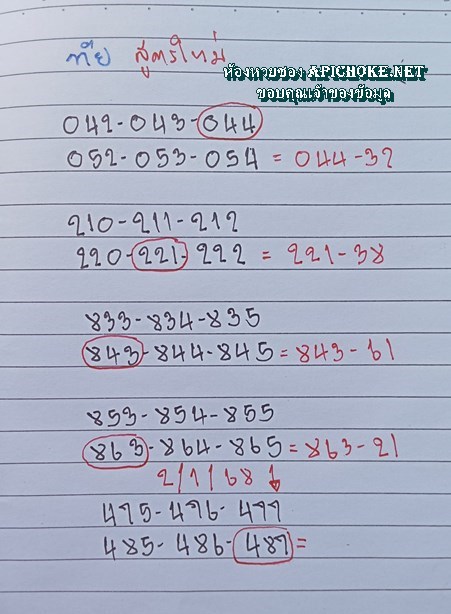 สูตรใหม่
ห้องหวยซอง APICHOKE.NET
ขอบคุณเจ้าของข้อมูล
042-043-044
052-053-054 = 044-32
210-211-212
220-221-222 = 221-38
833-834-835
843-844-845=843-61
853-854-855
863-864-865=863-21
2/1/68 ↓
475-476-477
485-486-487=